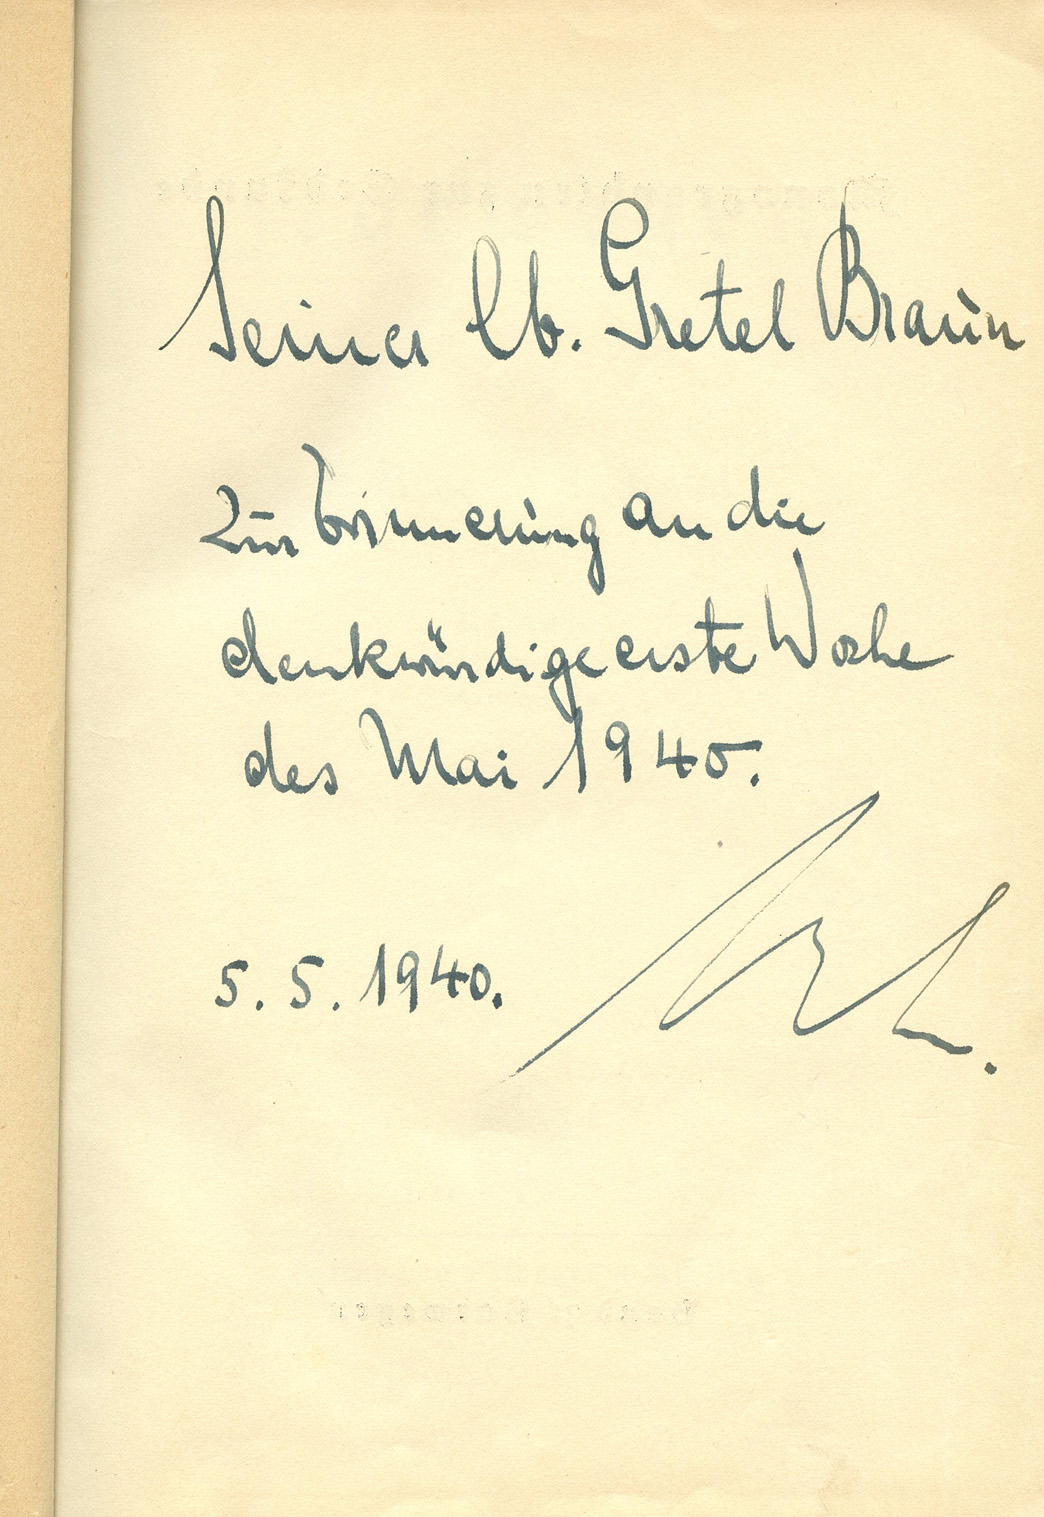 Seiner lb. Gretel Braun
Zur Erinnerung an die
denkwürdige erste Woche
des Mai 1940.
5. 5. 1940.